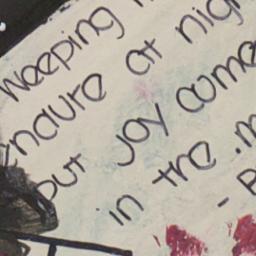 Weeping
endure at nigh
but Joy come
in the m
- P